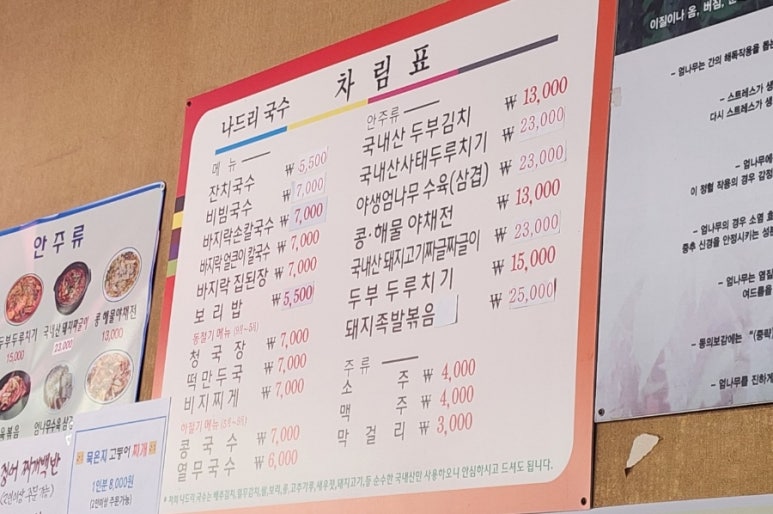 차림표
나드리 국수
메뉴
잔치국수 ₩ 5,500
비빔국수 ₩ 7,000
바지락손칼국수 ₩ 7,000
바지락 얼큰이 칼국수 ₩ 7,000
바지락 집된장 ₩ 7,000
보리밥 ₩ 5,500
동절기 메뉴
청국장 ₩ 7,000
떡만두국 ₩ 7,000
비지찌게 ₩ 7,000
하절기 메뉴
콩국수 ₩ 7,000
열무국수 ₩ 6,000
안주류
국내산 두부김치 ₩ 13,000
국내산사태두루치기 ₩ 23,000
야생엄나무 수육(삼겹) ₩ 23,000
콩·해물 야채전 ₩ 13,000
국내산 돼지고기짜글짜글이 ₩ 23,000
두부 두루치기 ₩ 15,000
돼지족발볶음 ₩ 25,000
주류
소주 ₩ 4,000
맥주 ₩ 4,000
막걸리 ₩ 3,000
안주류
두부두루치기 15,000
국내산 돼지짜글이 23,000
콩 해물야채전 13,000
엄나무수육 삼겹
묵은지 고등어 찌개
1인분 8,000원
(2인이상 주문가능)
이질이나 옴, 버짐,
- 엄나무는 간의 해독작용을
- 스트레스가
다시 스트레스가
- 엄나무에
이 정혈 작용의 경우
- 엄나무의 경우 소염
중추 신경을 안정시키는
- 엄나무는
여드름을
- 동의보감에는
- 엄나무를 진하게